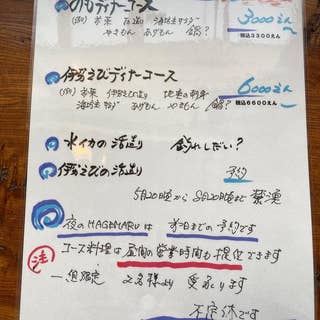 おもディナーコース
3000えん
税込3300えん
(例) 前菜
やきもん あげもん 鍋?
伊勢えびディナーコース
6000えん
税込6600えん
(例) 前菜 伊勢えび造り 地魚の刺身
やきもん 鍋?
水イカの活造り 釣れしだい?
伊勢えびの活造り 予約
5月20日頃から8月20日頃まで禁漁
夜のHAGEMARUは 前日までの予約です
注 コース料理は昼間の営業時間も提供できます
一組限定 2名様より 受承ります
不定休です